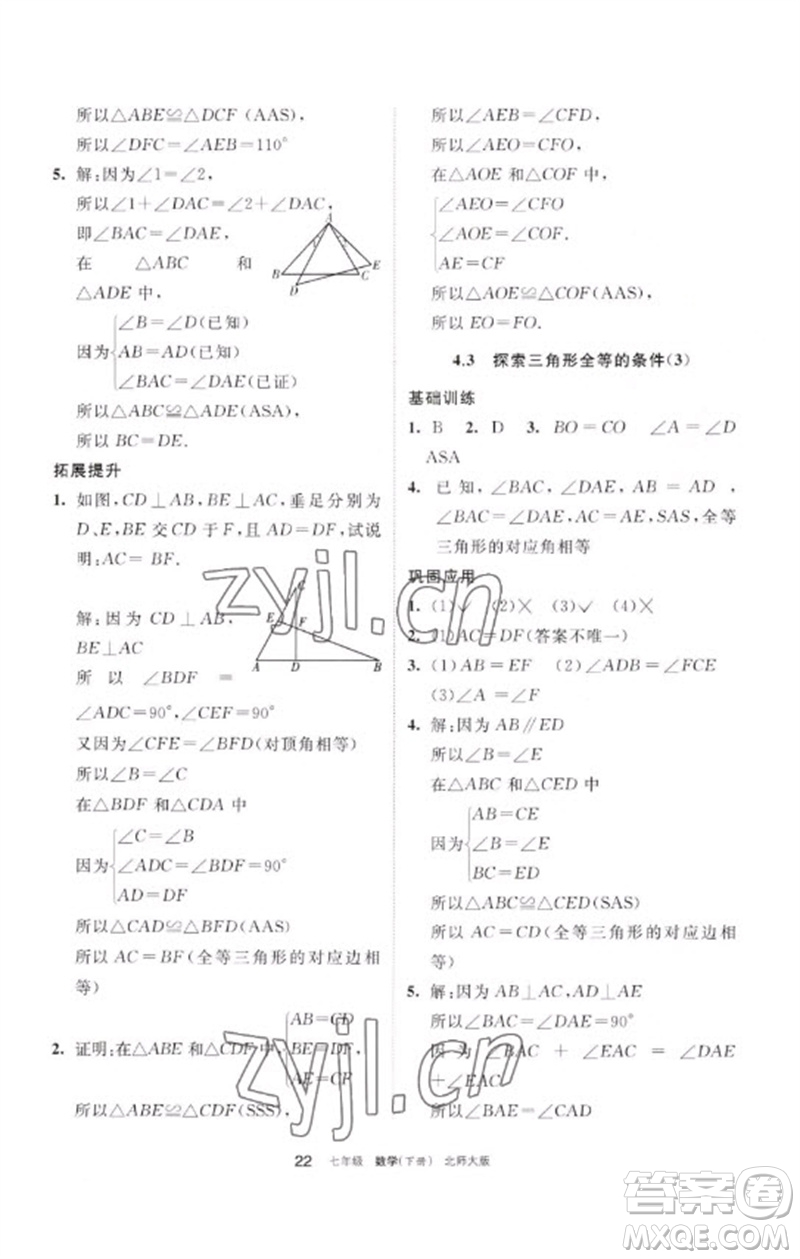 所以△ABE≌△DCF(AAS),
所以∠DFC=∠AEB=110°
5. 解:因为∠1=∠2,
所以∠1+∠DAC=∠2+∠DAC,
即∠BAC=∠DAE,
在 △ABC 和
△ADE中,
因为
∠B=∠D(已知)
AB=AD(已知)
∠BAC=∠DAE(已证)
所以△ABC≌△ADE(ASA),
所以 BC=DE.
A
1
2
B
C
D
E
拓展提升
1. 如图,CD⊥AB,BE⊥AC,垂足分别为
D、E,BE 交 CD 于 F,且 AD=DF,试说
明:AC=BF.
解:因为 CD⊥AB,
BE⊥AC
所以 ∠BDF =
∠ADC=90°,∠CEF=90°
C
E
F
A
D
B
又因为∠CFE=∠BFD(对顶角相等)
所以∠B=∠C
在△BDF 和△CDA 中
因为
∠C=∠B
∠ADC=∠BDF=90°
AD=DF
所以△CAD≌△BFD(AAS)
所以 AC=BF(全等三角形的对应边相
等)
2. 证明:在△ABE 和△CDF 中,
AB=CD
BE=DF,
AE=CF
所以△ABE≌△CDF(SSS),
所以∠AEB=∠CFD,
所以∠AEO=∠CFO,
在△AOE 和△COF 中,
∠AEO=∠CFO
∠AOE=∠COF.
AE=CF
所以△AOE≌△COF(AAS),
所以 EO=FO.
4.3 探索三角形全等的条件(3)
基础训练
1. B 2. D 3. BO=CO ∠A=∠D
ASA
4. 已知,∠BAC,∠DAE,AB=AD,
∠BAC=∠DAE,AC=AE,SAS,全等
三角形的对应角相等
巩固应用
1. (1)✓ (2)× (3)✓ (4)×
2. (1)AC=DF(答案不唯一)
3. (1)AB=EF (2)∠ADB=∠FCE
(3)∠A=∠F
4. 解:因为 AB∥ED
所以∠B=∠E
在△ABC 和△CED 中
因为
AB=CE
∠B=∠E
BC=ED
所以△ABC≌△CED(SAS)
所以 AC=CD(全等三角形的对应边相
等)
5. 解:因为 AB⊥AC,AD⊥AE
所以∠BAC=∠DAE=90°
因为 ∠BAC + ∠EAC = ∠DAE
+∠EAC
所以∠BAE=∠CAD
22 七年级 数学(下册) 北师大版
zyjl.cn
zyjl.cn
答案圈
MXQE.COM